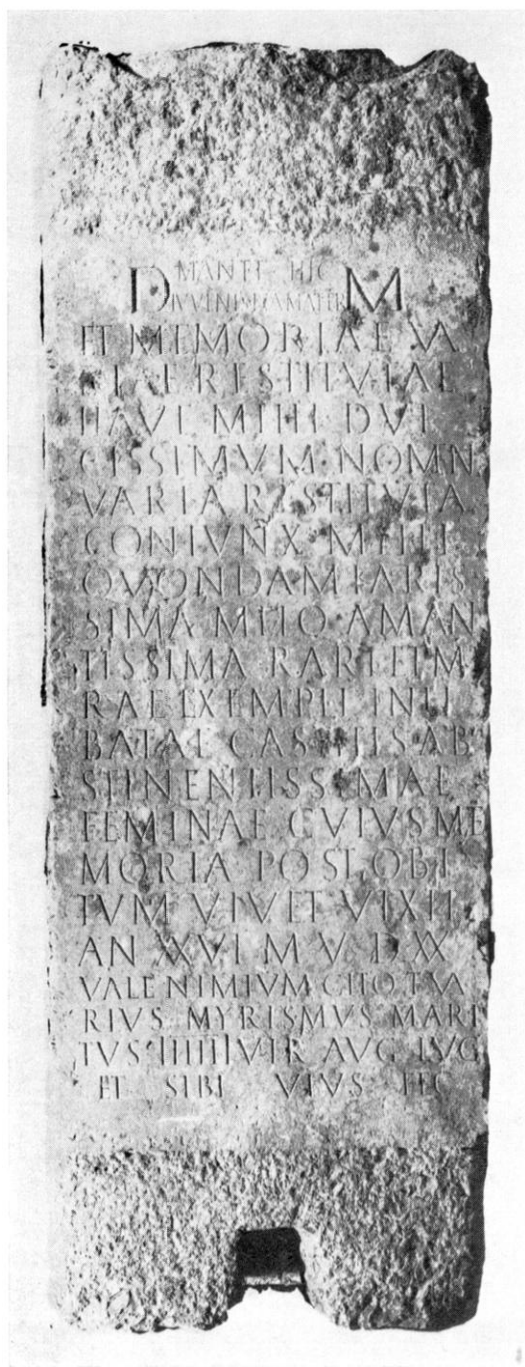 D MANTE HIC M
ET MEMORIAE VA
RIAE RESTITVTAE
HAVE MIHI DVL
CISSIMVM NOMN
VARIA RESTITVTA
CONIVNX MIHI
QVONDAM KARIS
SIMA MEIQ AMAN
TISSIMA RARI ET M
RAE EXEMPLI INLI
BATAE CASTITIS AB
STINENTISSIMAE
FEMINAE CVIVS ME
MORIA POST OBI
TVM VIVET VIXIT
AN XXVI M V D XX
VALE NIMIVM CITO T VA
RIVS MYRISMVS MARI
TVS IIIIIIVIR AVG LVG
ET SIBI VIVS FEC